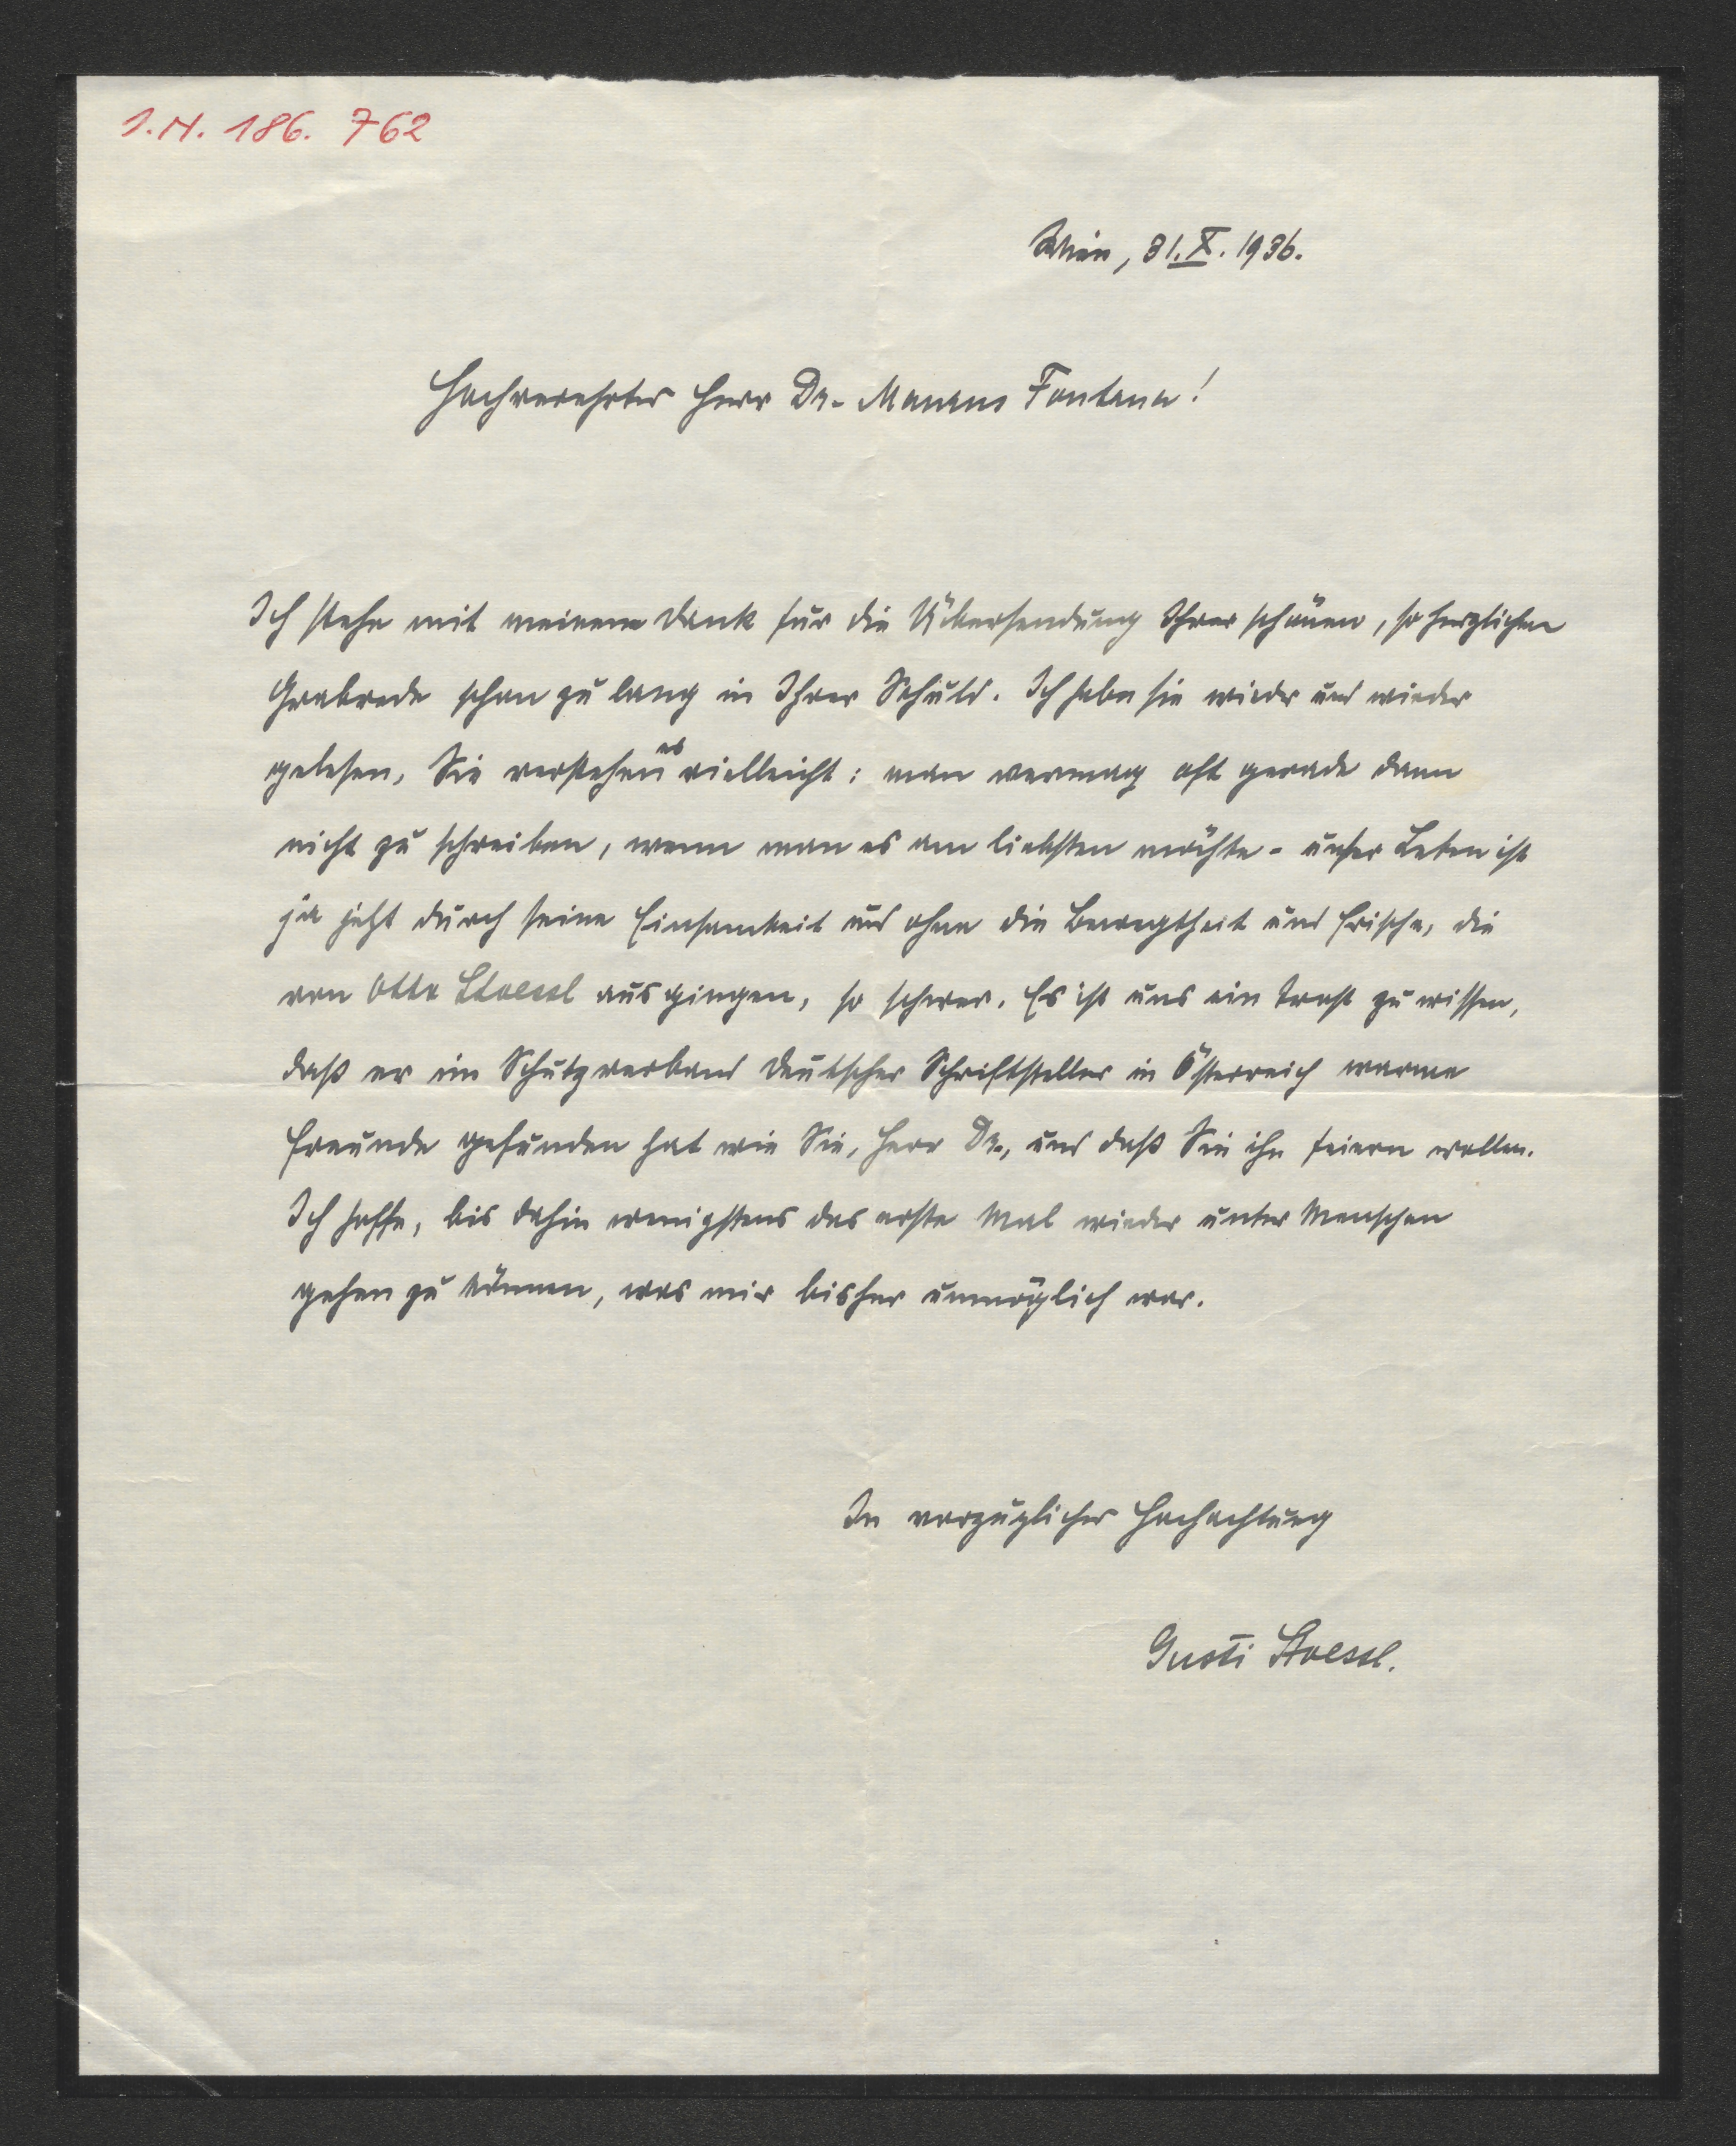 I.N. 186.762
Wien, 31.X.1936.
Hochverehrter Herr Dr. Maurus Fontana!
Ich stehe mit meinem Dank für die Übersendung Ihrer schönen, so herzlichen
Grabrede schon zu lang in Ihrer Schuld. Ich habe sie wieder und wieder
gelesen, Sie verstehen es vielleicht: man vermag oft gerade dann
nicht zu schreiben, wenn man es am liebsten möchte - unser Leben ist
ja jetzt durch seine Einsamkeit und ohne die Bewegtheit und Frische, die
von Otto Stoessl ausgingen, so schwer. Es ist uns ein Trost zu wissen,
daß er im Schutzverband deutscher Schriftsteller in Österreich warme
Freunde gefunden hat wie Sie, Herr Dr., und daß Sie ihn feiern wollen.
Ich hoffe, bis dahin wenigstens das erste Mal wieder unter Menschen
gehen zu können, was mir bisher unmöglich war.
In vorzüglicher Hochachtung
Gusti Stoessl.